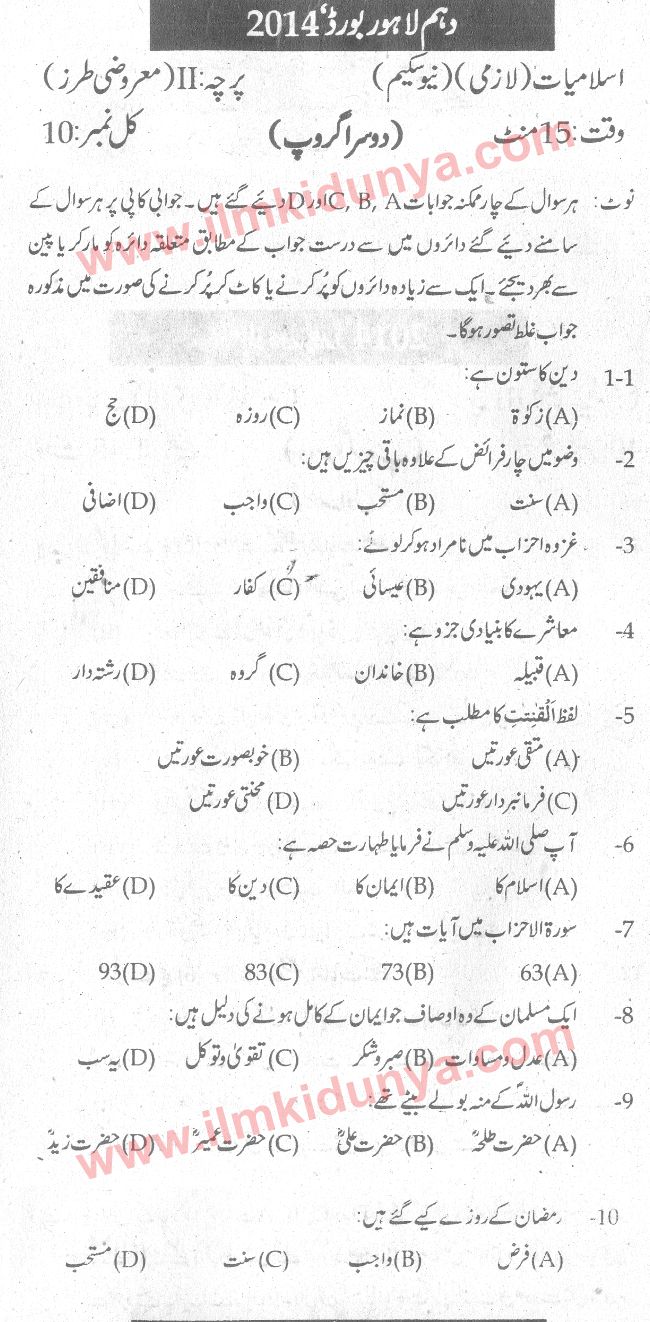 دہم لاہور بورڈ، 2014
اسلامیات (لازمی) (نیو سکیم) پرچہ: II (معروضی طرز)
وقت: 15 منٹ (دوسرا گروپ) کل نمبر: 10
نوٹ: ہر سوال کے چار ممکنہ جوابات C, B, A اور D دیئے گئے ہیں۔ جوابی کاپی پر ہر سوال کے
سامنے دیئے گئے دائروں میں سے درست جواب کے مطابق متعلقہ دائرہ کو مارکر یا پین
سے بھر دیجئے۔ ایک سے زیادہ دائروں کو پُر کرنے یا کاٹ کر پُر کرنے کی صورت میں مذکورہ
جواب غلط تصور ہوگا۔
1-1 دین کا ستون ہے:
(A) زکوٰۃ (B) نماز (C) روزہ (D) حج
-2 وضو میں چار فرائض کے علاوہ باقی چیزیں ہیں:
(A) سنت (B) مستحب (C) واجب (D) اضافی
-3 غزوہ احزاب میں نامراد ہو کر لوٹے:
(A) یہودی (B) عیسائی (C) کفار (D) منافقین
-4 معاشرے کا بنیادی جزو ہے:
(A) قبیلہ (B) خاندان (C) گروہ (D) رشتہ دار
-5 لفظ اَلْقٰنِتٰتِ کا مطلب ہے:
(A) متقی عورتیں (B) خوبصورت عورتیں
(C) فرمانبردار عورتیں (D) محنتی عورتیں
-6 آپ صلی اللہ علیہ وسلم نے فرمایا طہارت حصہ ہے:
(A) اسلام کا (B) ایمان کا (C) دین کا (D) عقیدے کا
-7 سورۃ الاحزاب میں آیات ہیں:
(A) 63 (B) 73 (C) 83 (D) 93
-8 ایک مسلمان کے وہ اوصاف جو ایمان کے کامل ہونے کی دلیل ہیں:
(A) عدل و مساوات (B) صبر و شکر (C) تقویٰ و توکل (D) یہ سب
-9 رسول اللہؐ کے منہ بولے بیٹے تھے:
(A) حضرت طلحہؓ (B) حضرت علیؓ (C) حضرت عمیرؓ (D) حضرت زیدؓ
-10 رمضان کے روزے کیے گئے ہیں:
(A) فرض (B) واجب (C) سنت (D) مستحب
www.ilmkidunya.com
www.ilmkidunya.com